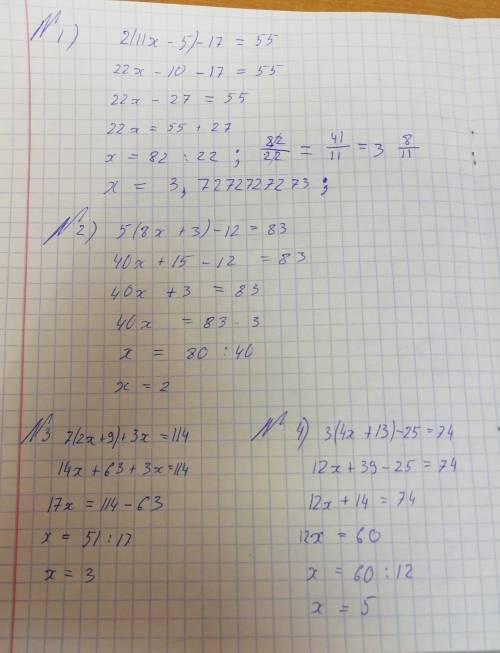 № 1) 2(11x - 5) - 17 = 55
22x - 10 - 17 = 55
22x - 27 = 55
22x = 55 + 27
x = 82 : 22 ; 82/22 = 41/11 = 3 8/11 ;
x = 3,7272727273 ;
№ 2) 5(8x + 3) - 12 = 83
40x + 15 - 12 = 83
40x + 3 = 83
40x = 83 - 3
x = 80 : 40
x = 2
№3 7(2x+9)+3x = 114
14x + 63 + 3x = 114
17x = 114 - 63
x = 51 : 17
x = 3
№ 4) 3(4x + 13) - 25 = 74
12x + 39 - 25 = 74
12x + 14 = 74
12x = 60
x = 60 : 12
x = 5